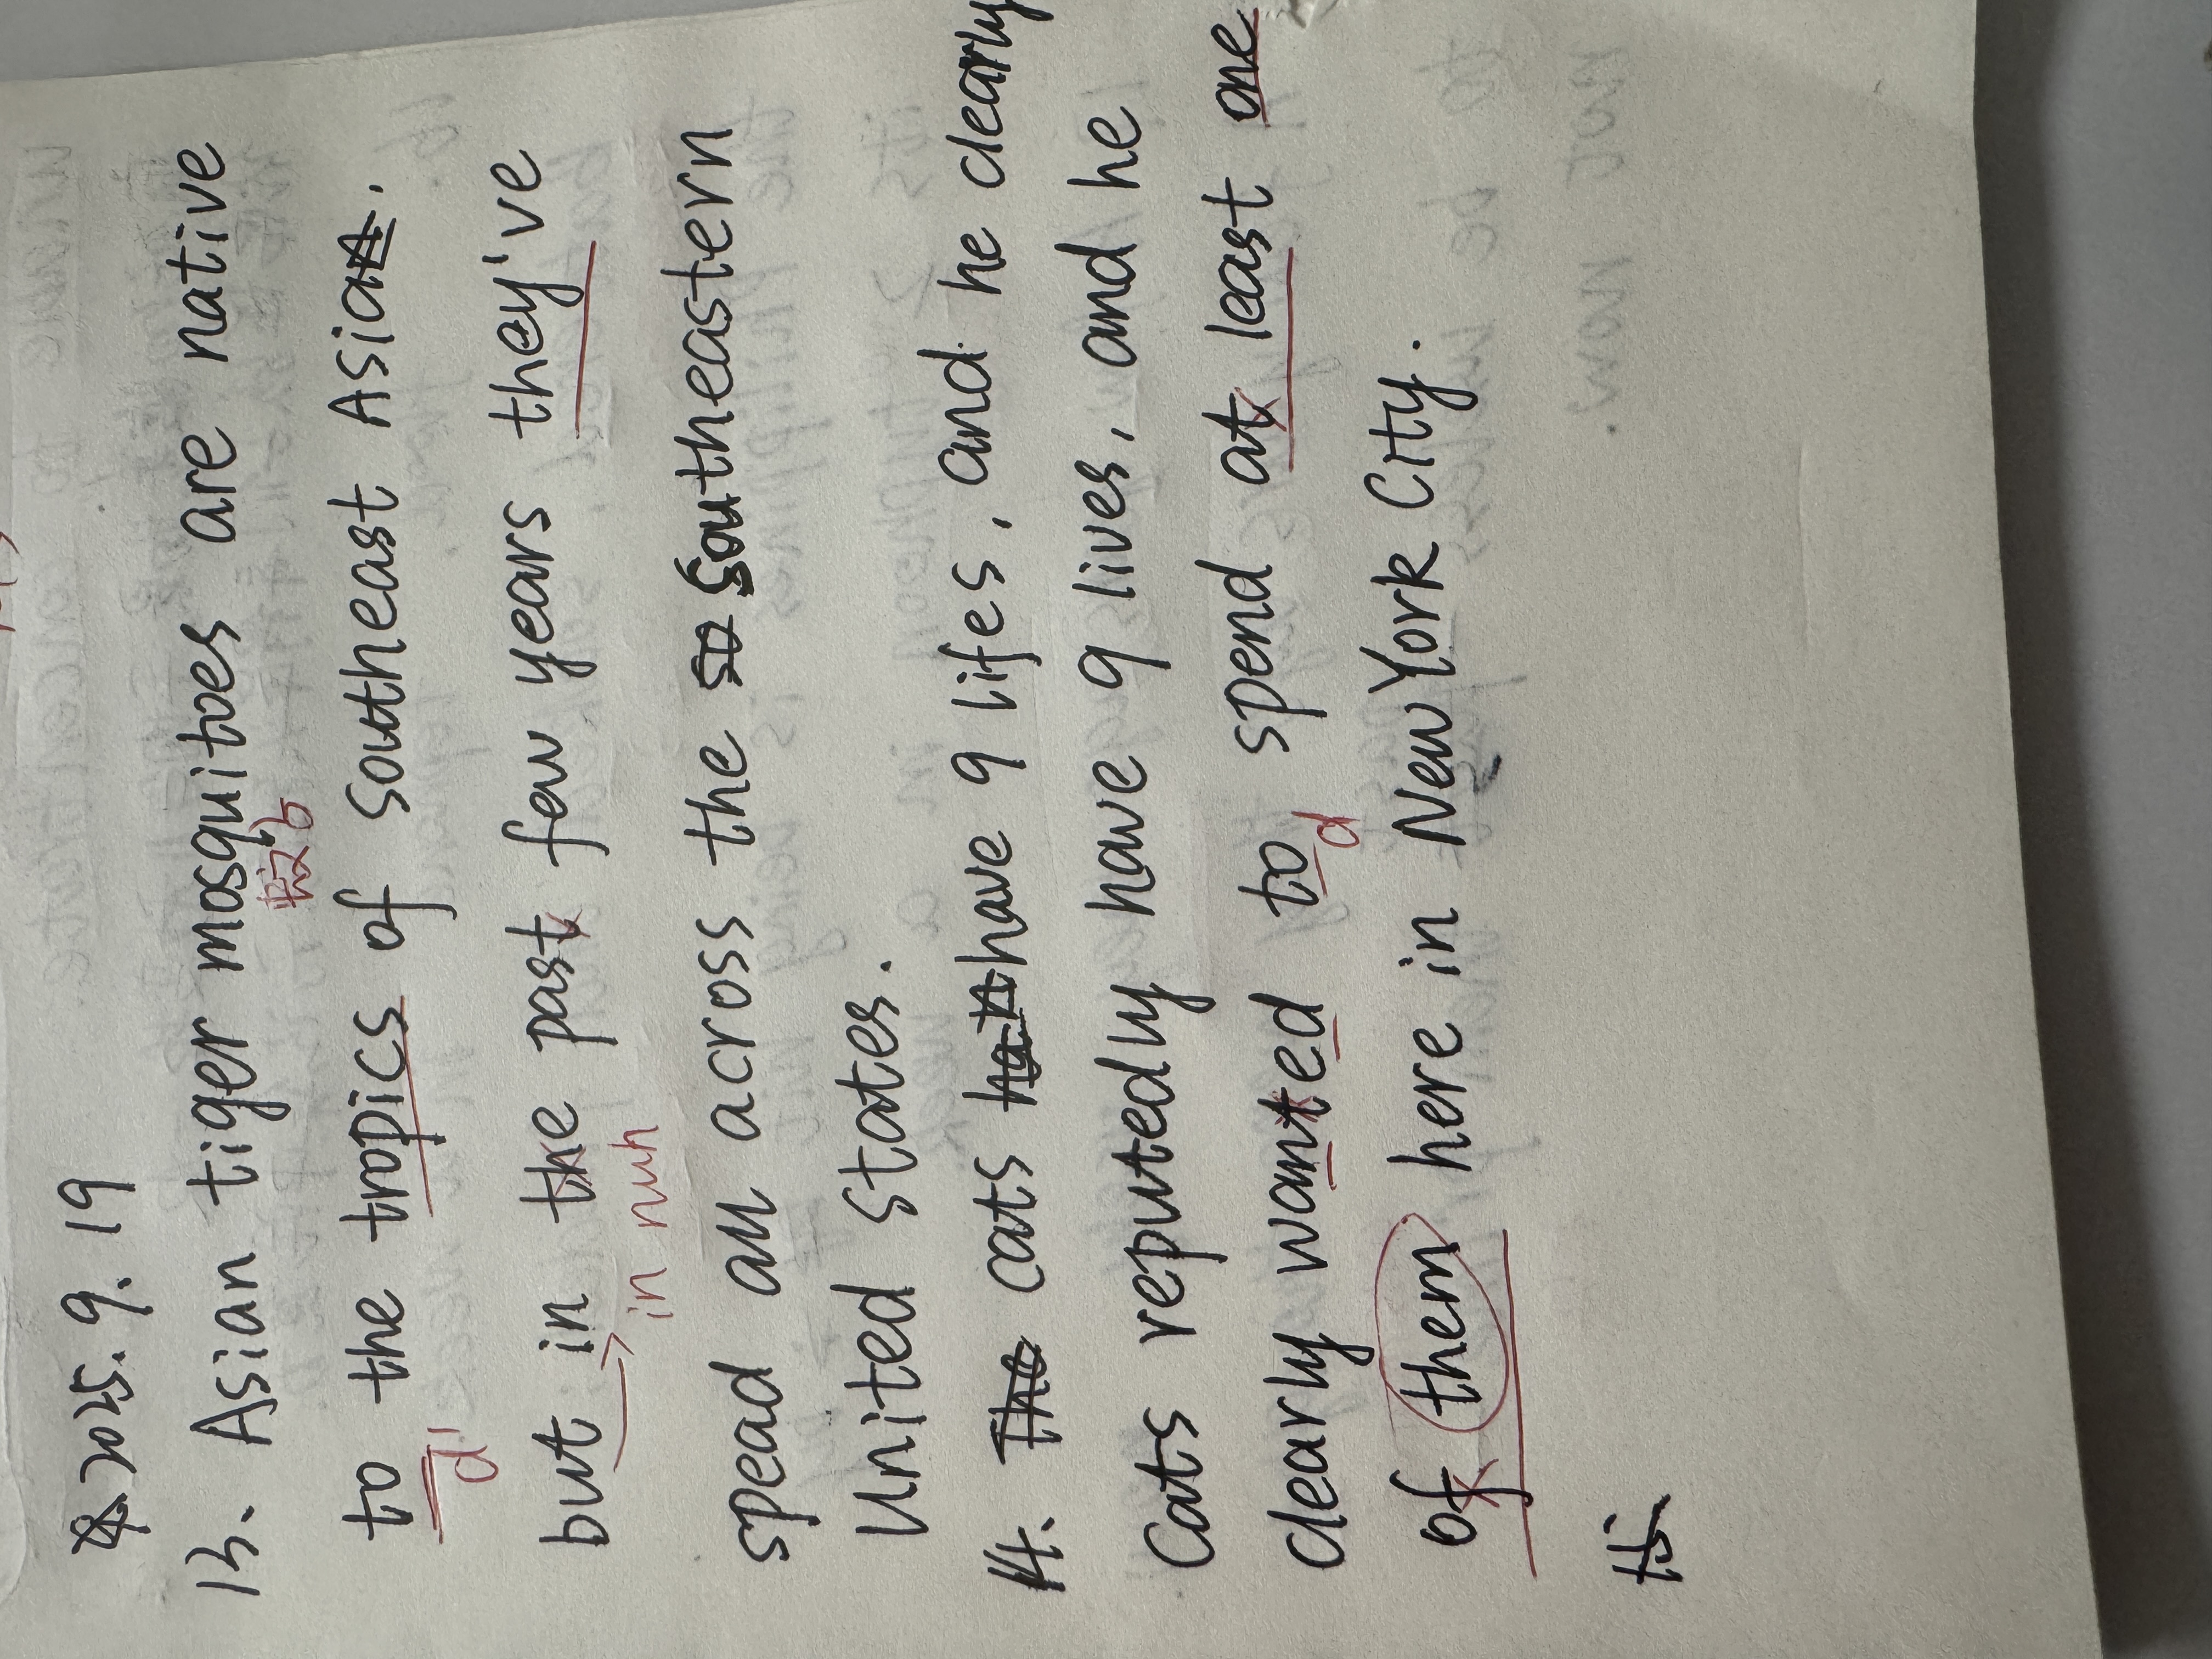 2025.9.19
13、Asian tiger mosquitoes are native
蚊子
to the tropics of southeast Asia.
d'
but in the past few years they've
in nuh
spead all across the southeastern
United States.
14. The cats have 9 lifes, and he clearly
Cats reputedly have 9 lives, and he
clearly wanted to spend at least one
d
of them here in New York City.
15